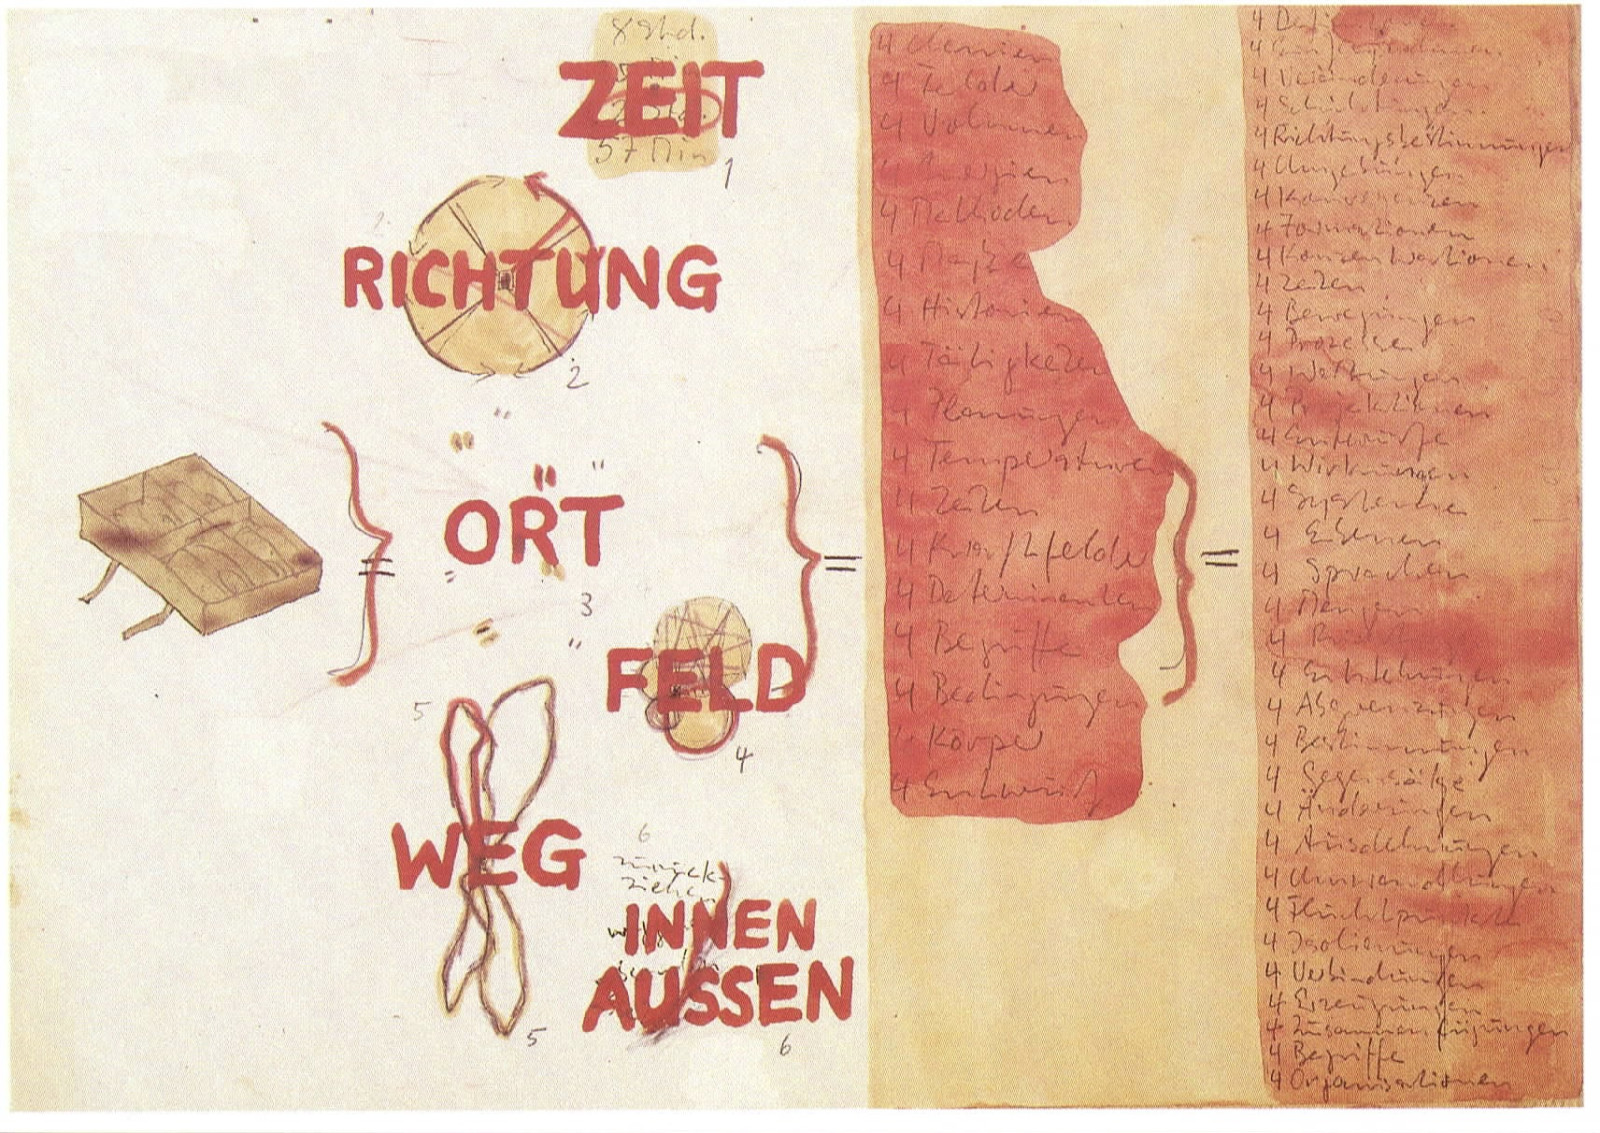 8 Std.
ZEIT
57 Min
1
RICHTUNG
2
ORT
3
FELD
4
5
WEG
5
6
zurück-
ziehen
INNEN
AUSSEN
6
=
=
=
4
4 Felder
4 Volumen
4 Energien
4 Methoden
4
4 Historien
4 Tätigkeiten
4 Planungen
4 Temperaturen
4 Zeiten
4 Kraftfelder
4 Determinanten
4 Begriffe
4 Bedingungen
4 Körper
4 Entwürfe
4
4
4 Veränderungen
4 Schichtungen
4 Richtungsbestimmungen
4 Umgebungen
4 Konvergenzen
4 Formationen
4 Konzentrationen
4 Zeiten
4 Bewegungen
4 Prozesse
4
4 Projektionen
4 Entwürfe
4 Wirkungen
4 Systeme
4 Ebenen
4 Sprachen
4 Mengen
4
4 Entstehungen
4 Abgrenzungen
4 Bestimmungen
4 Gegensätze
4 Änderungen
4 Ausdehnungen
4 Umwandlungen
4 Fluchtpunkte
4 Isolierungen
4 Verbindungen
4 Erzeugungen
4 Zusammenfügungen
4 Begriffe
4 Organisationen